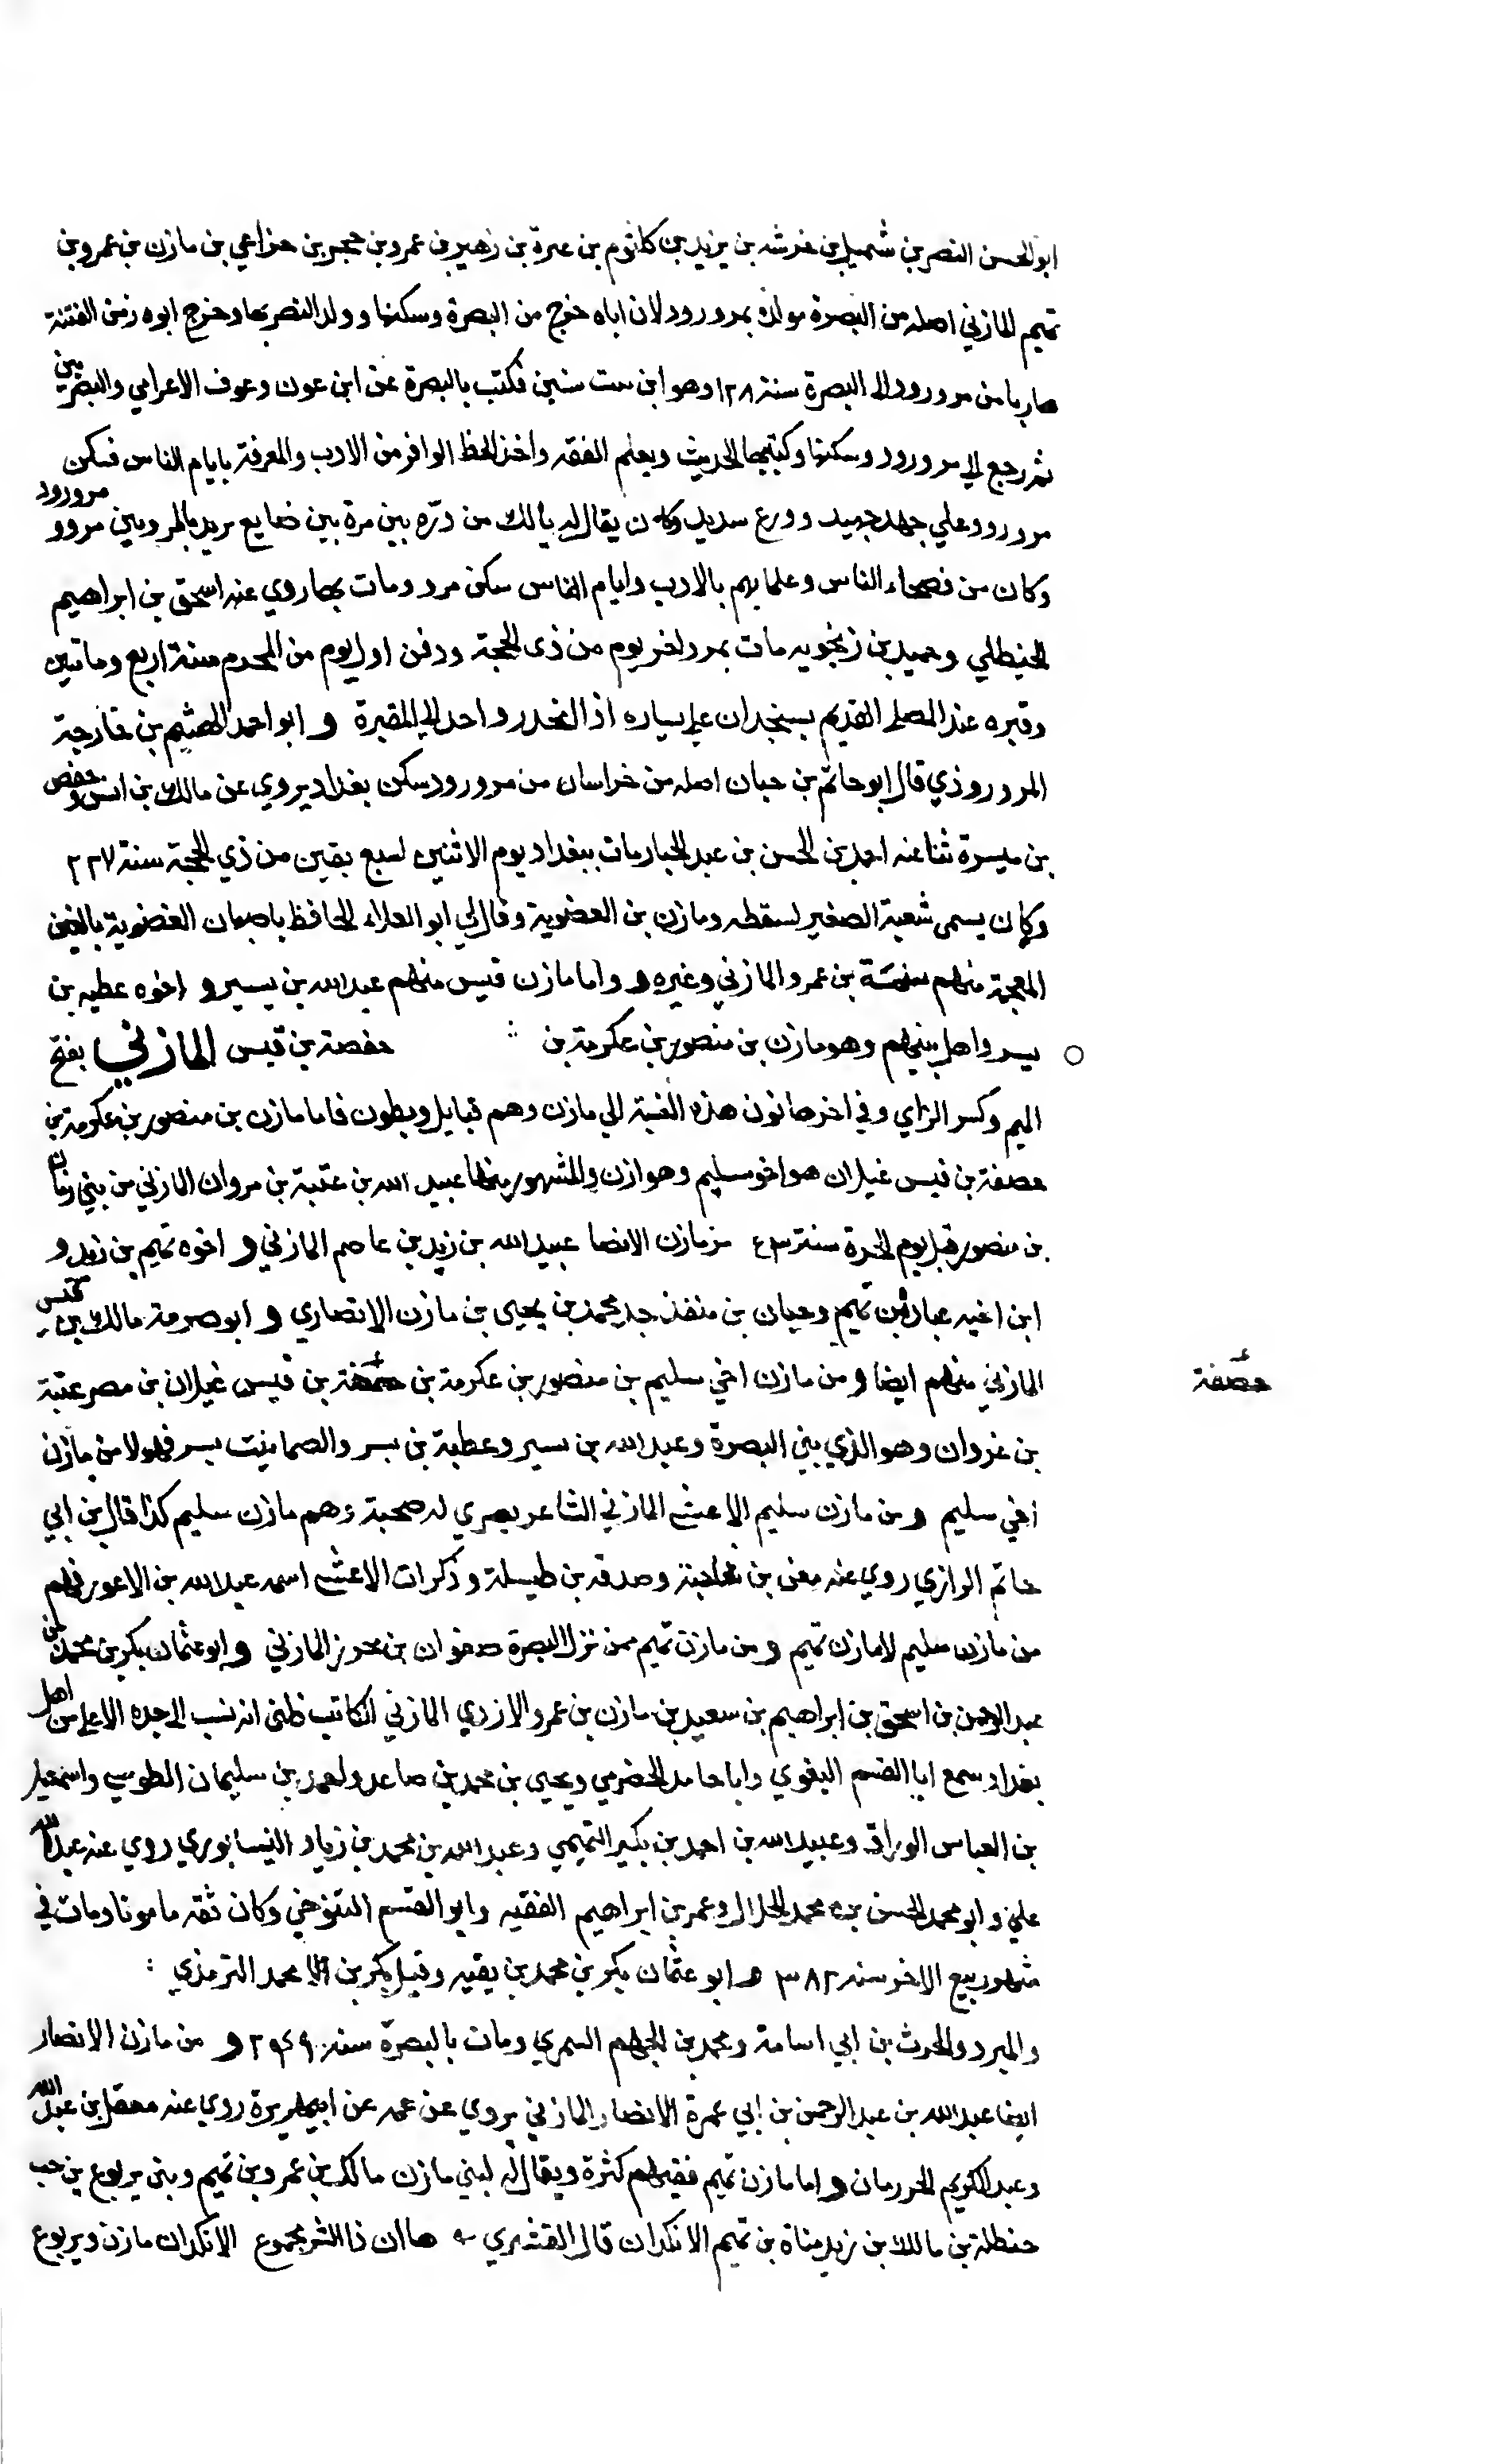 ابو الحسن النضر بن شميل بن خرشه بن يزيد بن كلثوم بن عبرة بن زهير بن عمرو بن حجر بن خزاعي بن مازن بن عمرو بن
تميم المازني اصله من البصرة مولده بمرو رود لان اباه خرج من البصرة وسكنها وولد النضر بها وخرج ابوه زمن الفتنة
هاربا من مرو رود الى البصرة سنة ١٢٨ وهو ابن ست سنين فكتب بالبصرة عن ابن عون وعوف الاعرابي والبصريين
ثم رجع الي مرو رود وسكنها وكتب بها الحديث ويعلم الفقه واخذ الحظ الوافر من الادب والمعرفة بايام الناس فسكن
مرو رود علي جهد جهيد وورع سديد وكان يقال له يالك من درّه بين مرة بين ضايع يريد بالمر وبين مرو و مرورود
وكان من فصحاء الناس وعلمايهم بالادب وايام الناس سكن مرو ومات بها روي عنه اسحق بن ابراهيم
الحنظلي وحميد بن زنجويه مات بمرو لاخر يوم من ذى الحجة ودفن اول يوم من المحرم سنة اربع وماتين
وقبره عند المصلى القديم بسنجدان على يساره اذ انحدر واحد الي المقبرة و ابو احمد الهثيم بن خارجة
المرو روذي قال ابو حاتم بن حبان اصله من خراسان من مرو رود سكن بغداد يروي عن مالك بن انس وحفص
بن ميسرة ثنا عنه احمد بن الحسن بن عبد الجبار مات ببغداد يوم الاثنين لسبع بقين من ذي الحجة سنة ٢٢٧
وكان يسمى شعبة الصغير لسقطه ومازن بن الغضوبة وقال لي ابو العلاء الحافظ باصبهان الغضوبة بالغين
المعجمة منهم بن عمرو المازني وغيره و واما مازن قيس منهم عبد الله بن يسير و اخوه عطيه بن
يسر واهل بيتهم وهو مازن بن منصور بن عكرمة بن حفصة بن قيس المازني بفتح
الميم وكسر الزاي وفي اخرها نون هذه النسبة الي مازن وهم قبايل وبطون فاما مازن بن منصور بن عكرمة بن
حصفة بن قيس غيلان هو اخو سليم وهوازن والمشهور منها عبيد الله بن عتبة بن مروان المازني من بني مازن
بن منصور قبل يوم الحرة سنة ٤٣ من مازن الانصا عبيد الله بن زيد بن عاصم المازني و اخوه تميم بن زيد و
ابن اخيه عباد بن تميم وحبان بن منقذ جد محمد بن يحيى بن مازن الانصاري و ابو صرمة مالك بن
المازني منهم ايضا و من مازن اخي سليم بن منصور بن عكرمة بن حصفة بن قيس غيلان بن مصر عتبة
حصفة
بن غزوان وهو الذي بني البصرة وعبد الله بن بسير وعطية بن بسر والصما بنت بسر فهولا من مازن
اخي سليم و من مازن سليم الاعشى المازني الشاعر بصري له صحبة وهم مازن سليم كذا قال بن ابي
حاتم الرازي روي عنه معن بن وصدقه بن طيسلة وذكر ان الاعشى اسمه عبد الله بن الاعور فهم
من مازن سليم لا مازن تميم و من مازن تميم ممن نزل البصرة صفوان بن محرز المازني و ابو عثمان بكر بن محمد بن
عبد الرحمن بن اسحق بن ابراهيم بن سعيد بن مازن بن عمرو الازدي المازني الكاتب ظني انه نسب الى جده الاعلى من اهل
بغداد سمع ابا القسم البغوي وابا حامد الحضرمي ويحيى بن محمد بن صاعد واحمد بن سليمان الطوسي واسمعيل
بن العباس الوراق وعبيد الله بن احمد بن بكير التميمي وعبد الله بن محمد بن زياد النيسابوري روي عنه عبد الله
علي و ابو محمد الحسن بن محمد الخلال وعمر بن ابراهيم الفقيه وابو القسم التنوخي وكان ثقه مامونا ومات في
شهور بيع الاخر سنه ٣٨٢ و ابو عثمان بكر بن محمد بن بقيه وقيل بكر بن محمد الترمذي :
والمبرد والحرث بن ابي اسامة ومحمد بن الجهم السمري ومات بالبصرة سنه ٢٤٩ و من مازن الانصار
ايضا عبد الله بن عبد الرحمن بن ابي عمرة الانصار المازني يروي عن عمه عن ابي هريرة روي عنه معقل بن عبد الله
وعبد الكريم الجررمان و اما مازن تميم ففيهم كثرة ويقال له لبني مازن مالك بن عمرو بن تميم وبني يربوع بن
حنظلة بن مالك بن زيد مناة بن تميم الانكدان قال القشيري ها ان ذا الشر مجموع الانكدان مازن ويربوع